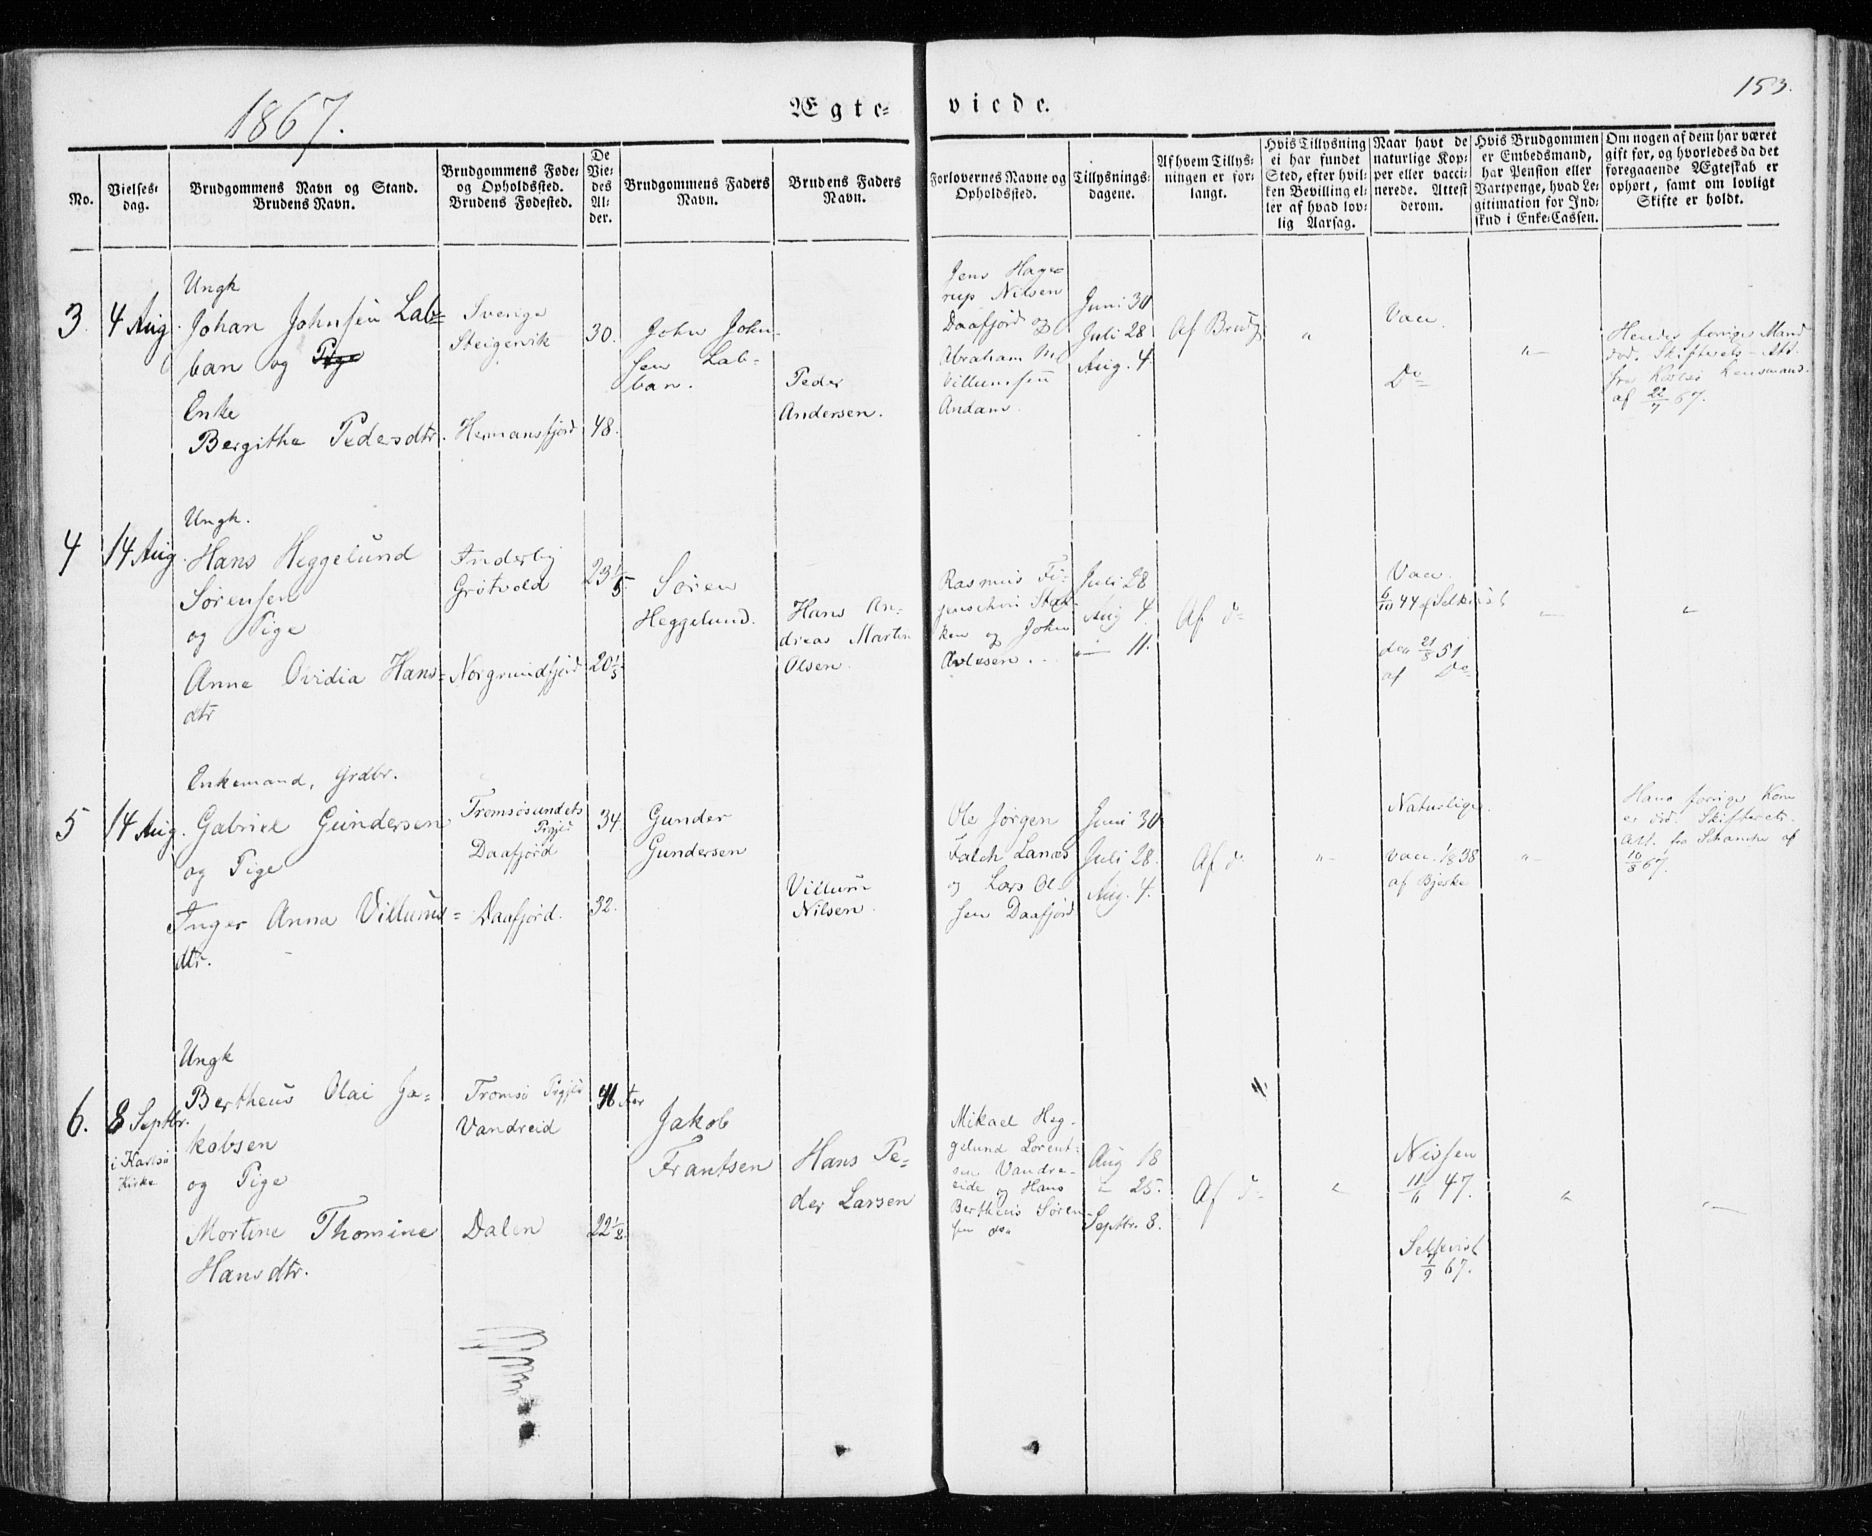 1867.
Ægte=
viede.
153.
No.
Vielses=
dag.
Brudgommens Navn og Stand.
Brudens Navn.
Brudgommens Føde=
og Opholdssted.
Brudens Fødested.
De
Vie=
des
Al=
der.
Brudgommens Faders
Navn.
Brudens Faders
Navn.
Forlovernes Navne og
Opholdssted.
Tillysnings=
dagene.
Af hvem Tillys=
ningen er for=
langt.
Hvis Tillysning
ei har fundet
Sted, efter hvil=
ken Bevilling el=
ler af hvad lov=
lig Aarsag.
Naar havt de
naturlige Kop=
per eller vacci=
nerede. Attest
derom.
Hvis Brudgommen
er Embedsmand,
har Pension eller
Vartpenge, hvad Le=
gitimation for Ind=
skud i Enke=Cassen.
Om nogen af dem har været
gift før, og hvorledes da det
foregaaende Ægteskab er
ophørt, samt om lovligt
Skifte er holdt.
3.
4 Aug.
Ungk
Johan Johnsen Lab=
ban og Pige
Enke
Bergithe Pedersdtr.
Sverige
Steigervik
Hermansfjord
30.
48.
John John-
sen Lab-
ban.
Peder
Andersen.
Jens Hage-
rup Nilsen
Daafjord og
Abraham M.
Villumsen
Andam.
Juni 30
Juli 28
Aug. 4.
Af Brudg
"
Vacc.
Do
"-
Hendes forrige Mand
død. Skifterets-Att.
fra Karlsø Lensmand
af 22/7 67.
4
14 Aug.
Ungk.
Hans Heggelund
Sørensen
og Pige
Anne Ovidia Hans=
dtr
Inderby
Grøtvold
Norgrundfjord
23 1/5
20 1/5
Søren
Heggelund.
Hans An-
dreas Martin
Olsen.
Rasmus
og John
Juli 28
Aug 4.
" 11.
Af d-
Vacc.
6/10 44 af
21/8 51
af Do
"-
"
5
14 Aug.
Enkemand, Grdbr.
Gabriel Gundersen
og Pige
Inger Anna Villums=
dtr.
Tromsøsundets
Prgjld
Daafjord
Daafjord.
34.
32.
Gunder
Gundersen
Villum
Nilsen.
Ole Jørgen
Falch Lanæs
og Lars Ol-
sen Daafjord
Juni 30
Juli 28.
Aug. 4.
Af d-
"-
Naturlige.
vacc. 1838
af Bjerke
"-
Hans forrige Kone
er død. Skifterets-
Att. fra af
10/8 67.
6.
8 Septbr.
i Karlsø
Kirke
Ungk
Bertheus Olai Ja=
kobsen
og Pige
Mortine Thomine
Hansdtr.
Tromsø Prgjld
Vandreid
Dalen
22 1/2
Jakob
Frantsen
Hans Pe=
der Larsen
Mikael Heg-
gelund Lorent-
sen Vandre-
eide og Hans
Bertheus Søren-
sen do
Aug 18
" 25.
Septbr. 8.
Af d-
"
Nissen
11/6 47.
Selqvist
7/9 67.
"
"-